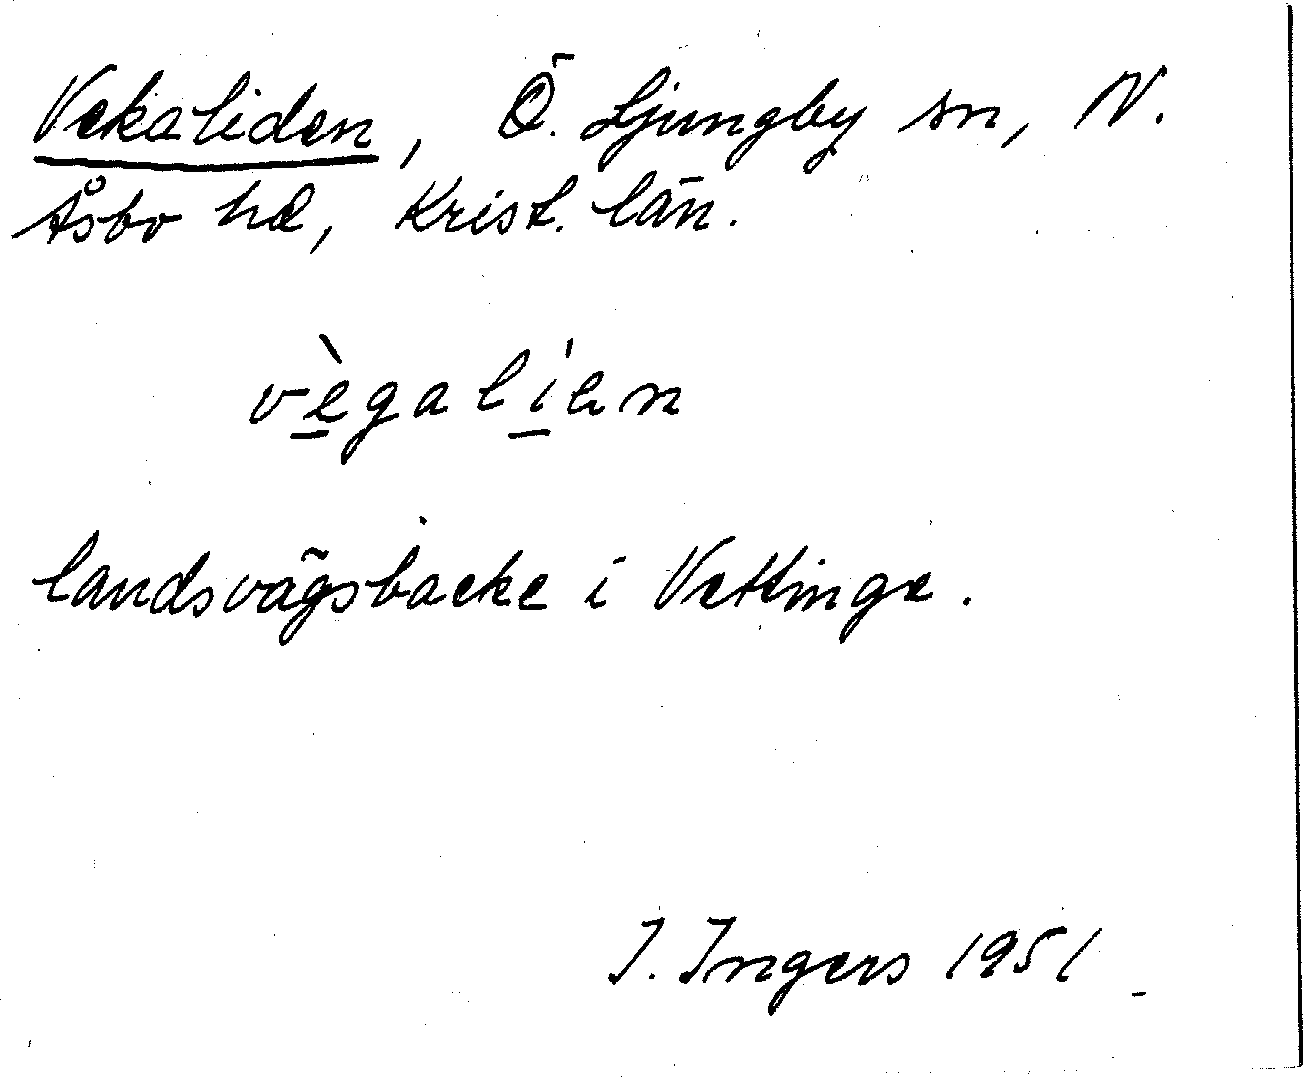 Vekaliden, Ö. Ljungby sn, N.
Åsbo hd, Krist. län.
vègalíen
landsvägsbacke i Vettinge.
I. Ingers 1951